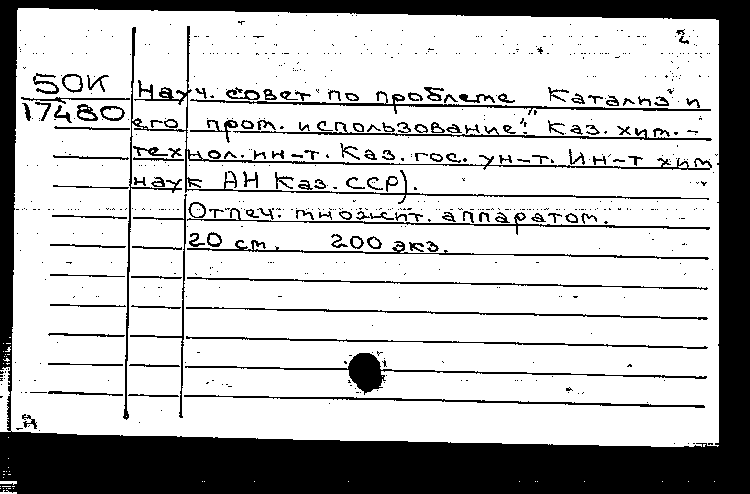 2
50К Науч. совет по проблеме Катализ и
17480 его пром. использование". Каз. хим.-
технол. ин-т. Каз. гос. ун-т. Ин-т хим.
наук АН Каз. ССР).
Отпеч. множит. аппаратом.
20 см. 200 экз.